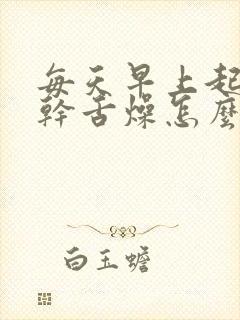 每天早上起
幹舌燥怎麼
白玉蟾